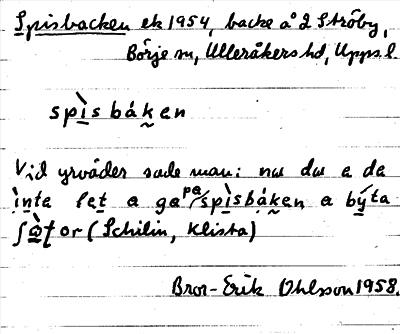 Spisbacken ek 1954, backe å 2 Ströby,
Börje sn, Ulleråkers hd, Upps. l.
spìsbáken
Vid yrväder sade man: nu du e de
ìnte let a ga pa spìsbáken a býta
(Schilin, Klista)
Bror-Erik Ohlsson 1958.